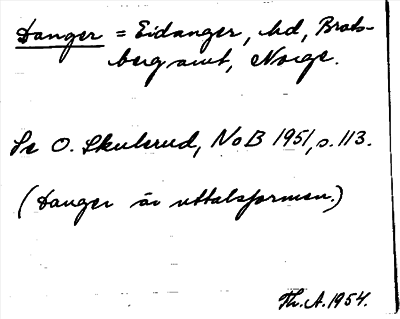 Danger = Eidanger, hd, Brats-
berg amt, Norge.
Se O. Skulerud, NoB 1951, s. 113.
(Danger är uttalsformen.)
Th. A. 1954.